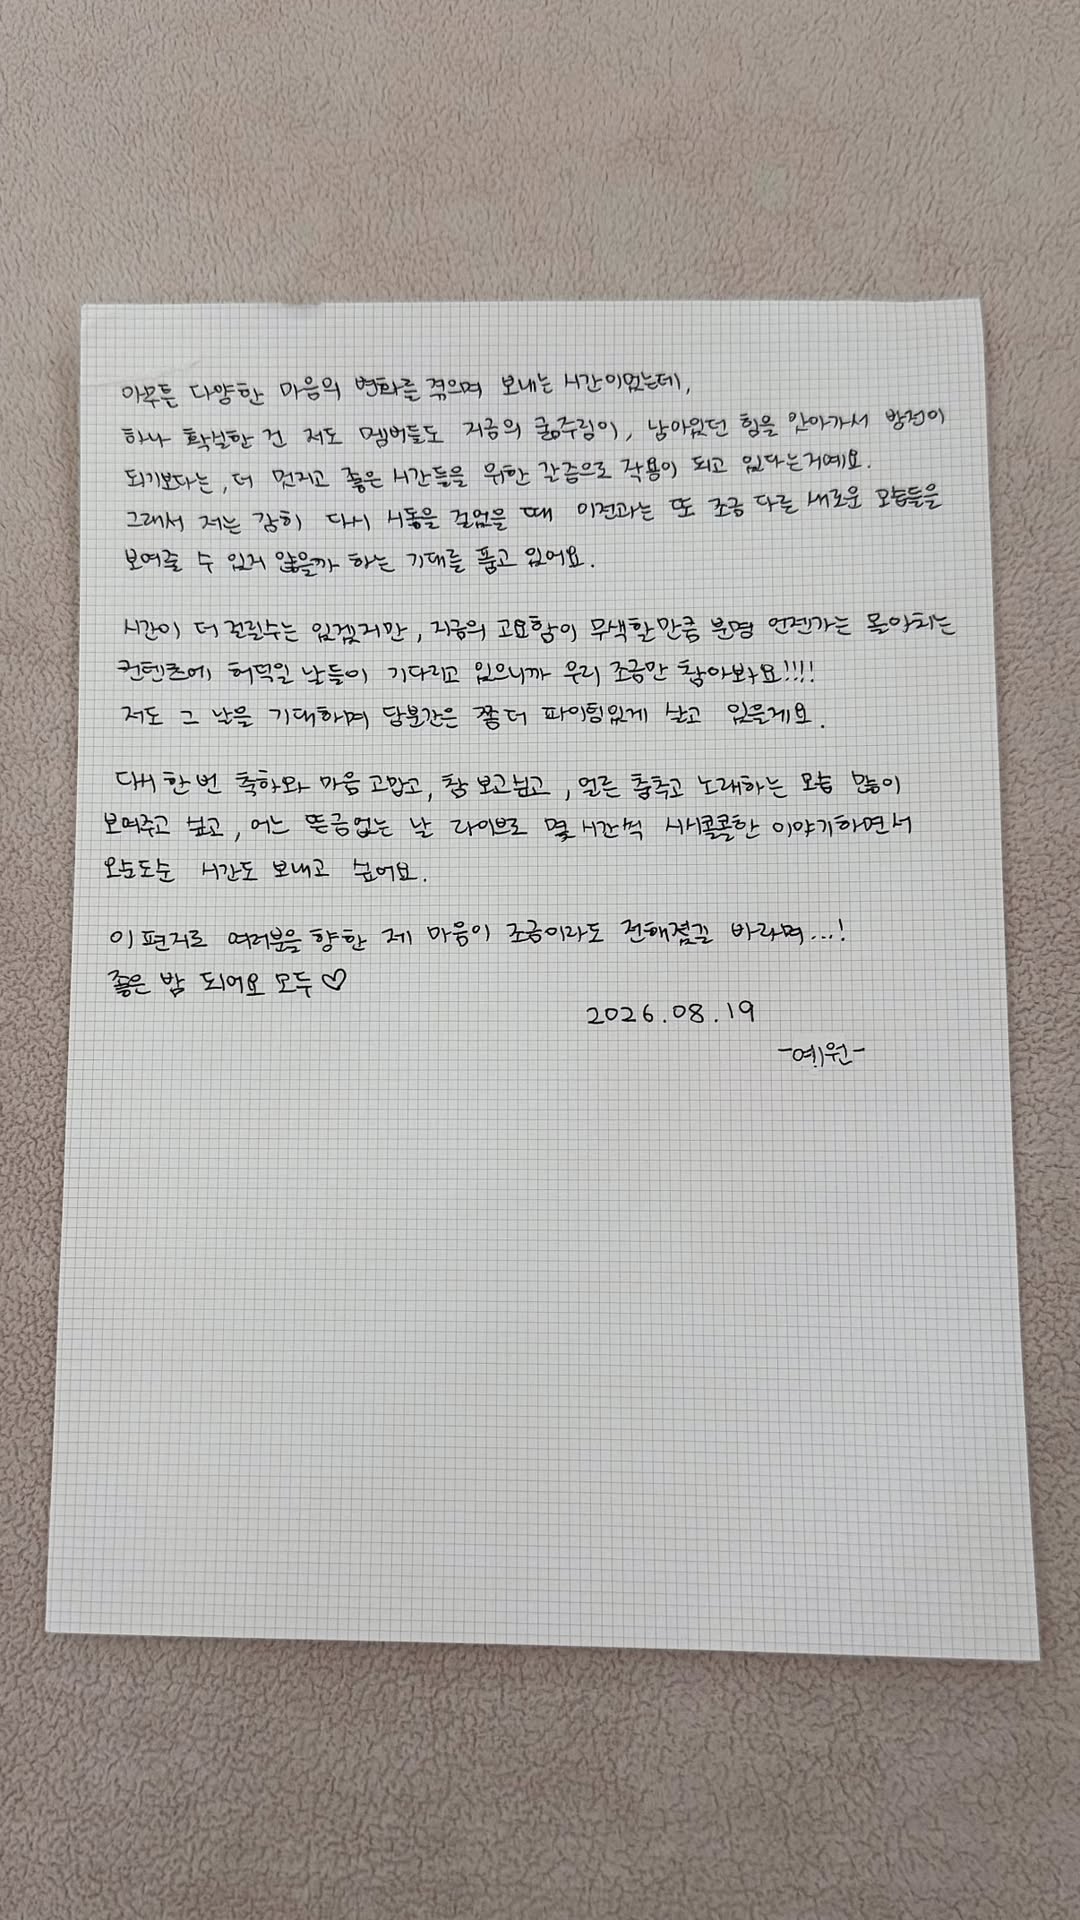 아무튼 다양한 마음의 변화를 겪으며 보내는 시간이었는데,
하나 확실한 건 저도 멤버들도 지금의 굶주림이, 남아있던 힘을 앗아가서 방전이
되기보다는, 더 멋지고 좋은 시간들을 위한 갈증으로 작용이 되고 있다는거예요.
그래서 저는 감히 다시 시동을 걸었을 때 이전과는 또 조금 다를 새로운 모습들을
보여줄 수 있지 않을까 하는 기대를 품고 있어요.
시간이 더 걸릴수는 있겠지만, 지금의 고요함이 무색할만큼 분명 언젠가는 몰아치는
컨텐츠에 허덕일 날들이 기다리고 있으니까 우리 조금만 참아봐요!!!!
저도 그 날을 기대하며 당분간은 쫌 더 파이팅있게 살고 있을게요.
다시 한 번 축하와 마음 고맙고, 참 보고싶고, 얼른 춤추고 노래하는 모습 많이
보여주고 싶고, 어느 뜬금없는 날 라이브로 몇 시간씩 시시콜콜한 이야기하면서
오순도순 시간도 보내고 싶어요.
이 편지로 여러분을 향한 제 마음이 조금이라도 전해졌길 바라며...!
좋은 밤 되어요 모두♡
2026.08.19
-예원-